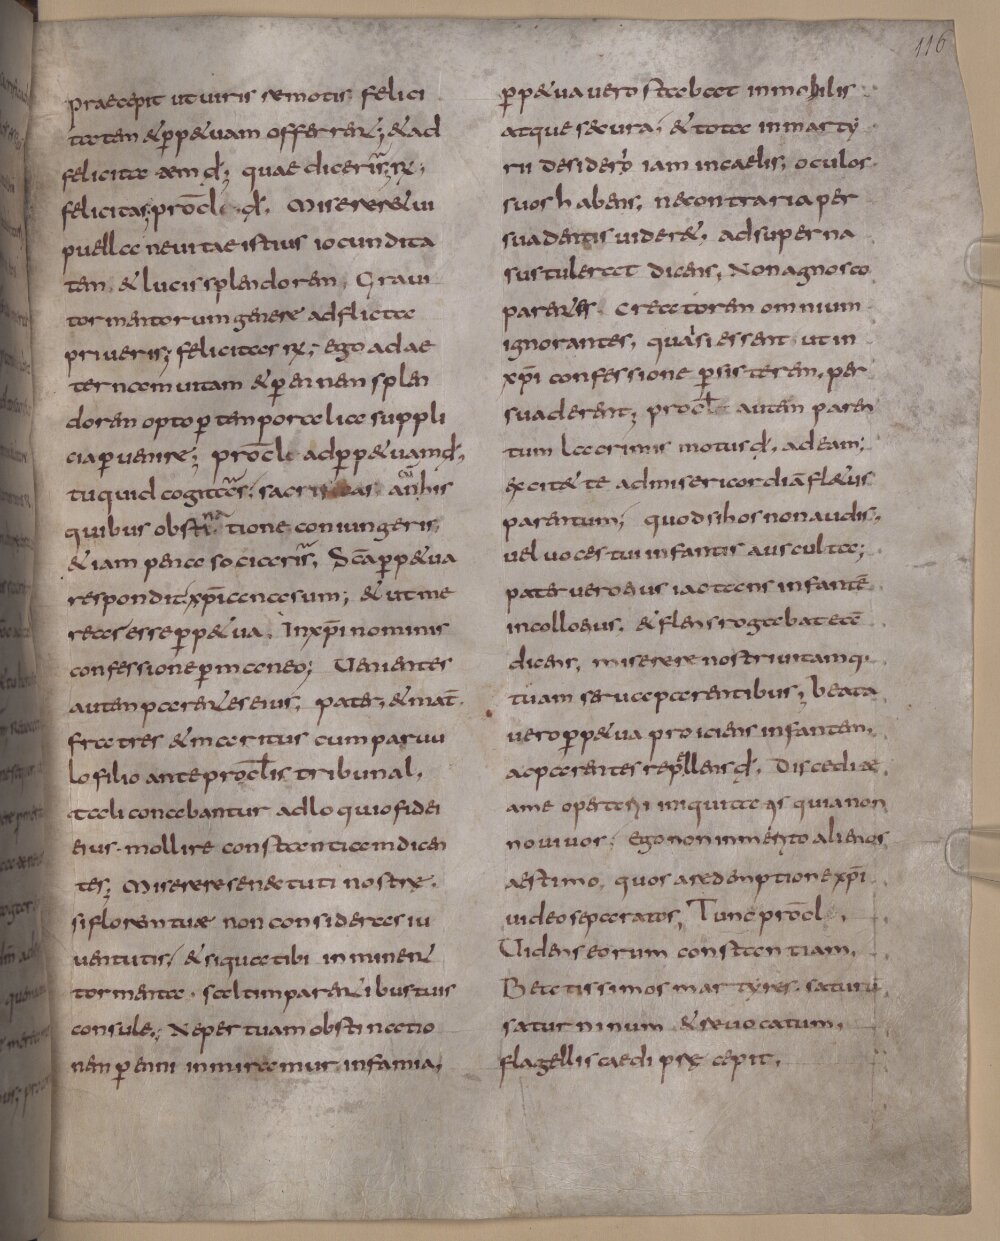 116
praecepit ut uiris remotis felici
tatem & p̄p&uam offerren&; & ad
felicitatem d̄; quae diceris; R̄;
felicitas; procl̄ d̄. Miserere tui
puella ne uitae istius iocundita
tem & lucis splendorem, Graui
tormentorum genere adflicta
priueris; felicitas R̄; Ego ad ae
ternam uitam & perennem splen
dorem opto p̄ temporalia suppli
cia p̄uenire; procl̄ ad p̄p&uam d̄,
tu quid cogitas; sacrificas; an his
quibus obstinatione coniungeris,
& iam pena sociaris, Sc̄a p̄p&ua
respondit xp̄iana sum; & ut me
rear esse p̄p&ua, In xp̄i nominis
confessione p̄maneo; Uenientes
autem parentes eius, pater, & mat̄
fratres & maritus cum paruu
lo filio ante procl̄is tribunal,
tali conabantur adloquio fidei
eius mollire constantiam dicen
tes; Miserere senectuti nostre,
si florem tuae non consideras iu
uentutis, & si qua tibi inminen&
tormenta saltim parentibus tuis
consule; Ne per tuam obstinatio
nem p̄enni inmiramur infamia,
p̄p&ua uero stabat inmobilis
atque secura, & tota in marty
rii desiderio iam in caelis, oculos
suos habens, ne contraria per
suadentis uider&, ad superna
sustulerat dicens, Non agnosco
parentes creatorem omnium
ignorantes, qui si essent ut in
xp̄i confessione p̄sisterem, per
suaderent; procl̄ autem paren
tum lacrimis motus d̄, ad eam;
Excit& te ad misericordiā fl&us
parentum; quod si hos non audis,
uel uoces tui infantis ausculta;
pater uero eius iactans infantē
in collo eius, & flens rogabat eam
dicens, miserere nostri uitamq;
tuam serua parentibus; beata
uero p̄p&ua proiciens infantem,
ac parentes repellens d̄, Discedite
a me operarii iniquitatis quia non
noui uos; Ego non inmerito alienos
aestimo, quos a redemptione xp̄i
uideo separatos, Tunc procl̄,
Uidens eorum constantiam,
Beatissimos martyres saturū
saturninum & reuocatum,
flagellis caedi precepit,